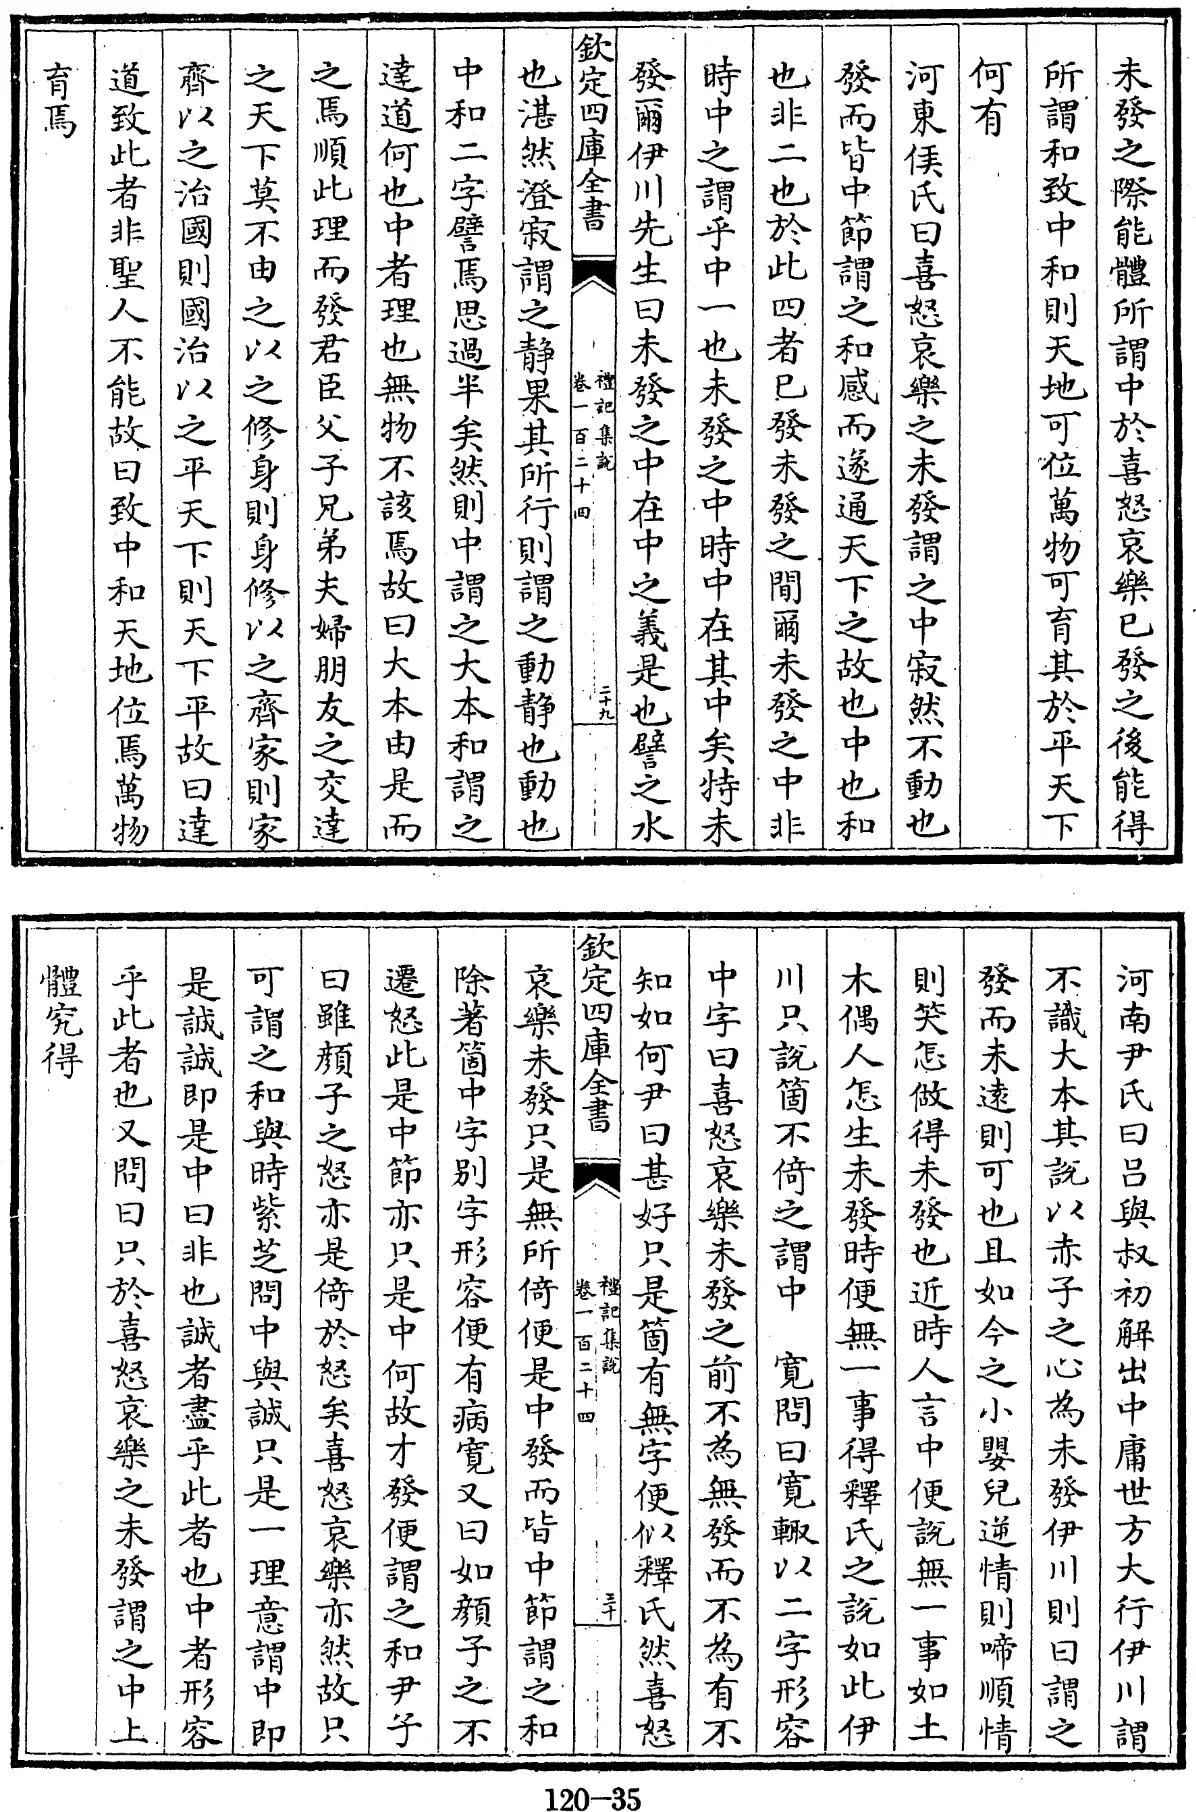 未發之際能體所謂中於喜怒哀樂已發之後能得
所謂和致中和則天地可位萬物可育其於平天下
何有
河東侯氏曰喜怒哀樂之未發謂之中寂然不動也
發而皆中節謂之和感而遂通天下之故也中也和
也非二也於此四者已發未發之間爾未發之中非
時中之謂乎中一也未發之中時中在其中矣特未
發爾伊川先生曰未發之中在中之義是也譬之水
欽定四庫全書
禮記集說
卷一百二十四
二十九
也湛然澄寂謂之静果其所行則謂之動静也動也
中和二字譬焉思過半矣然則中謂之大本和謂之
達道何也中者理也無物不該焉故曰大本由是而
之焉順此理而發君臣父子兄弟夫婦朋友之交達
之天下莫不由之以之修身則身修以之齊家則家
齊以之治國則國治以之平天下則天下平故曰達
道致此者非聖人不能故曰致中和天地位焉萬物
育焉
河南尹氏曰吕與叔初解出中庸世方大行伊川謂
不識大本其説以赤子之心為未發伊川則曰謂之
發而未遠則可也且如今之小嬰兒逆情則啼順情
則笑怎做得未發也近時人言中便説無一事如土
木偶人怎生未發時便無一事得釋氏之説如此伊
川只説箇不倚之謂中　寛問曰寛輙以二字形容
中字曰喜怒哀樂未發之前不為無發而不為有不
知如何尹曰甚好只是箇有無字便似釋氏然喜怒
欽定四庫全書
禮記集說
卷一百二十四
三十
哀樂未發只是無所倚便是中發而皆中節謂之和
除著箇中字别字形容便有病寛又曰如顔子之不
遷怒此是中節亦只是中何故才發便謂之和尹子
曰雖顔子之怒亦是倚於怒矣喜怒哀樂亦然故只
可謂之和與時紫芝問中與誠只是一理意謂中即
是誠誠即是中曰非也誠者盡乎此者也中者形容
乎此者也又問曰只於喜怒哀樂之未發謂之中上
體究得
120-35